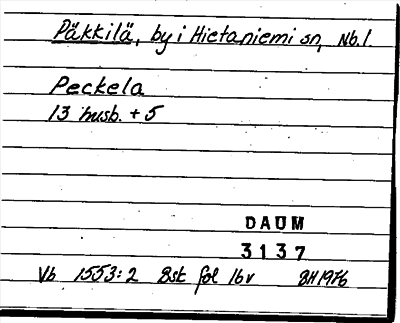 Päkkilä, by i Hietaniemi sn, Nb.l.
Peckela
13 husb. + 5
DAUM
3137
Vb 1553:2 Bsk fol 16v BH1976